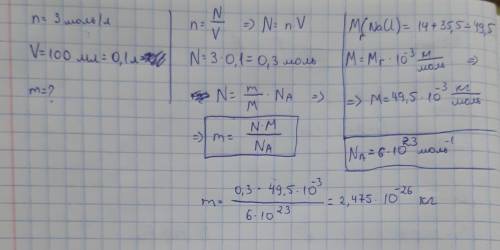 n = 3 моль/л
V = 100 мл = 0,1 л
m = ?
n = N/V ⇒ N = n V
N = 3 · 0,1 = 0,3 моль
N = m/M · N_A ⇒
⇒ m = N·M/N_A
M_r(NaCl) = 14 + 35,5 = 49,5
M = M_r · 10^-3 кг/моль ⇒
⇒ M = 49,5 · 10^-3 кг/моль
N_A = 6 · 10^23 моль^-1
m = 0,3 · 49,5 · 10^-3 / 6 · 10^23 = 2,475 · 10^-26 кг